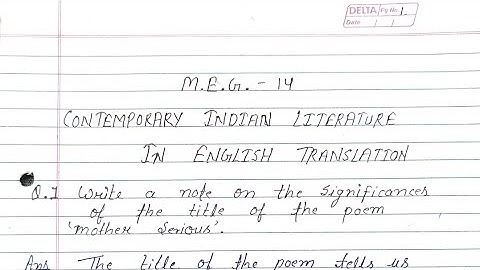 DELTA Pg No. 1
Date / /
M.E.G. - 14
CONTEMPORARY INDIAN LITERATURE
IN ENGLISH TRANSLATION
Q.1 Write a note on the significances
of the title of the poem
'mother serious'.
Ans The title of the poem tells us